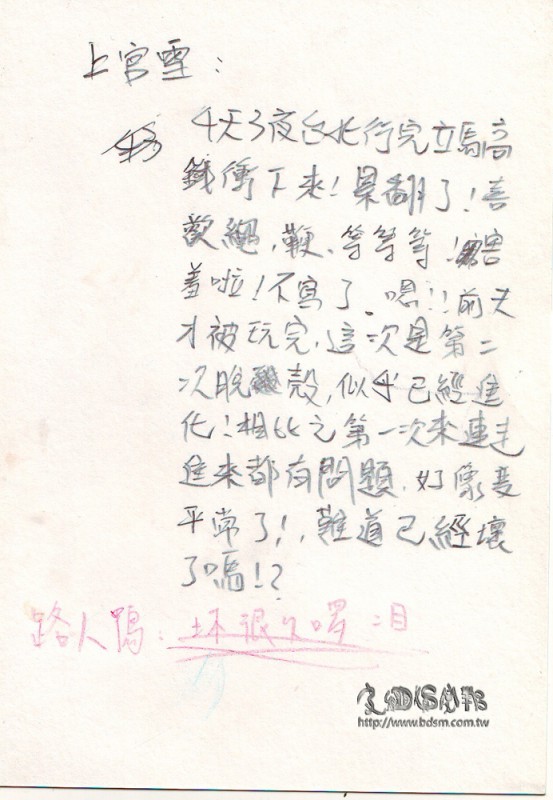 上官雪：
4天3夜台北行完立馬高
鐵衝下來！累翻了！喜
歡繩，鞭、等等等！害
羞啦！不寫了。嗯!!前天
才被玩完，這次是第二
次脫殼，似乎已經進
化！相比之第一次來連走
進來都有問題，好像變
平常了!，難道已經壞
了嗎!?
路人鴨：坏很久囉 =目
http://www.bdsm.com.tw